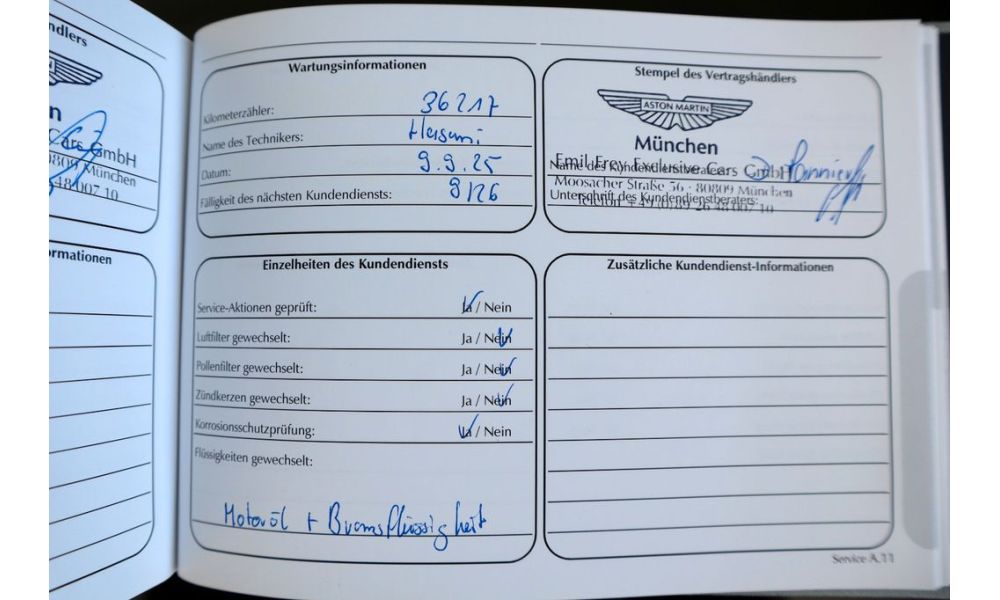 ndlers
n
Cars GmbH
80809 München
48 007 10
ormationen
Wartungsinformationen
Kilometerzähler: 36217
Name des Technikers:
Datum: 9.9.25
Fälligkeit des nächsten Kundendiensts: 9/26
Stempel des Vertragshändlers
ASTON MARTIN
München
Emil Frey Exclusive Cars GmbH
Name des Kundendienstberaters:
Moosacher Straße 56 · 80809 München
Unterschrift des Kundendienstberaters:
Telefon +49 (0)89 26 48 007 10
Einzelheiten des Kundendiensts
Service-Aktionen geprüft: Ja / Nein
Luftfilter gewechselt: Ja / Nein
Pollenfilter gewechselt: Ja / Nein
Zündkerzen gewechselt: Ja / Nein
Korrosionsschutzprüfung: Ja / Nein
Flüssigkeiten gewechselt:
Motoröl + Bremsflüssigkeit
Zusätzliche Kundendienst-Informationen
Service A.11